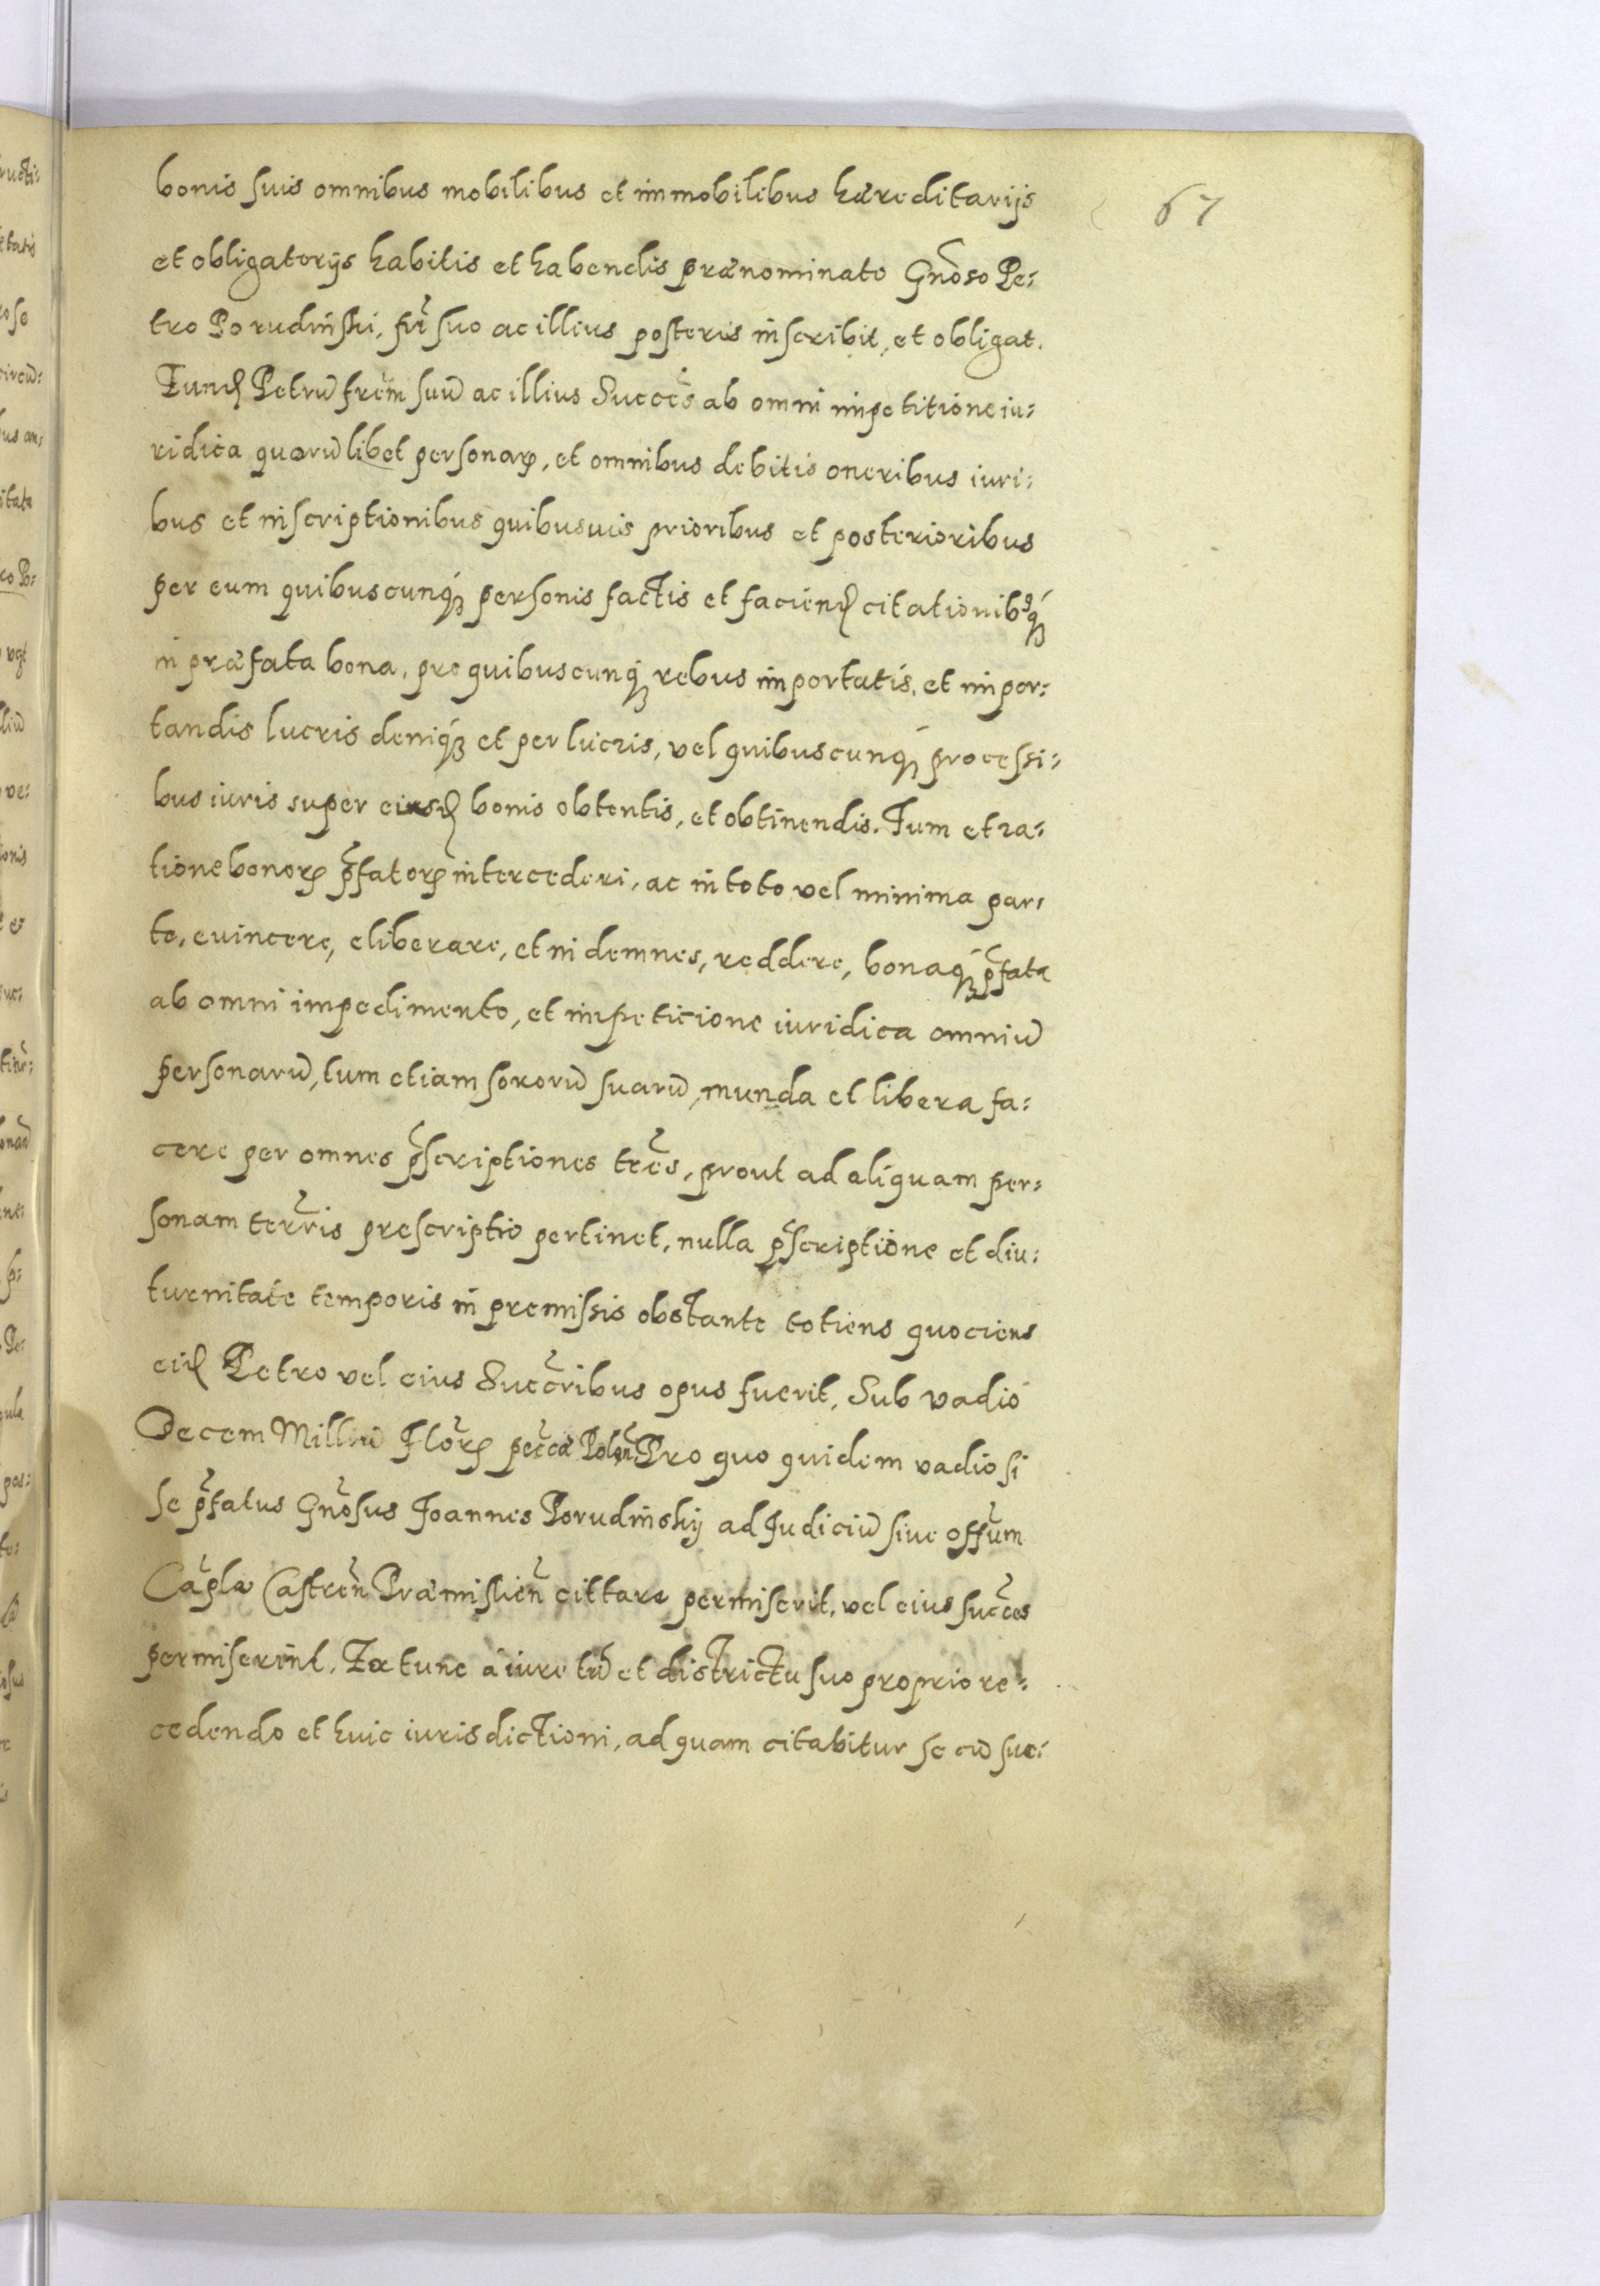 67
bonis suis omnibus mobilibus et immobilibus hæreditarijs
et obligatorijs habitis et habendis prænominato Gnoso Pe-
tro Porudinski, fri suo ac illius posteris inscribit, et obligat.
Eund Petrū frem suū ac illius Succes ab omni impetitione iu-
ridica quorūlibet personar, et omnibus debitis oneribus iuri-
bus et inscriptionibus quibusuis prioribus et posterioribus
per eum quibuscunq personis factis et faciend citationibq
in præfata bona, pro quibuscunq rebus importatis, et impor-
tandis lucris deniq et perlucris, vel quibuscunq processi-
bus iuris super eisd bonis obtentis, et obtinendis. Tum et ra-
tione bonor pfator intercederi, ac in toto vel minima par-
te, euincere, eliberare, et indemnes, reddere, bonaq pfata
ab omni impedimento, et impeticione iuridica omniū
personarū, tum etiam sororū suarū, munda et libera fa-
cere per omnes pscriptiones tres, prout ad aliquam per-
sonam terris prescriptio pertinet, nulla pscriptione et diu-
turnitate temporis in premissis obstante totiens quociens
eid Petro vel eius Succribus opus fuerit, Sub vadio
Decem Milliū Flor peccæ Polon Pro quo quidem vadio si
se pfatus Gnosus Joannes Porudinskij ad Judiciū siue offum
Caple Castren Præmislien cittare permiserit, vel eius succes
permiserint. Ex tunc a iure tū et districtu suo proprio re-
cedendo et huic iurisdictioni, ad quam citabitur se cū suc-